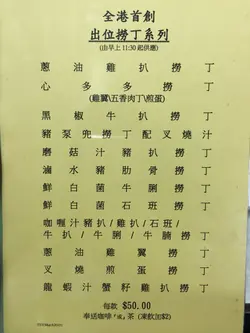 全港首創
出位撈丁系列
(由早上11:30起供應)
蔥油雞扒撈丁
心多多撈丁
(雞翼/五香肉丁/煎蛋)
黑椒牛扒撈丁
豬泵売撈丁配叉燒汁
磨菇汁豬扒撈丁
滷水豬肋骨撈丁
鮮白菌牛脷撈丁
鮮白菌石班撈丁
咖喱汁豬扒/雞扒/石班/
牛扒/牛脷/牛腩撈丁
蔥油雞翼撈丁
叉燒煎蛋撈丁
龍蝦汁蟹籽雞扒撈丁
每款 $50.00
奉送咖啡"或"茶(凍飲加$2)